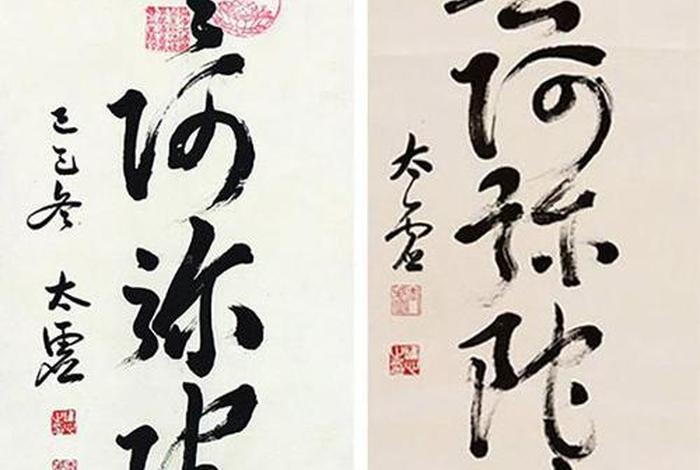 阿弥陀
己巳冬 太虚
阿弥陀
太虚